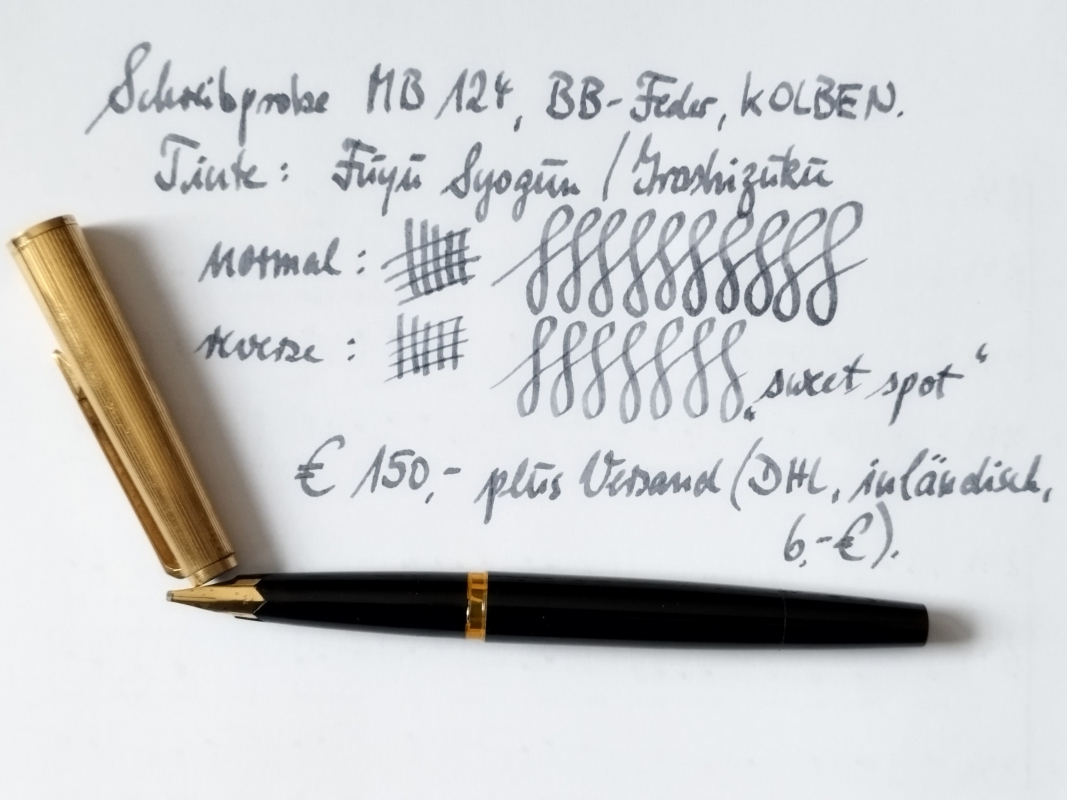 Schreibprobe MB 124, BB-Feder, KOLBEN.
Tinte: Fuyu Syogun / Iroshizuku
normal:
reverse: „sweet spot“
€ 150,- plus Versand (DHL, inländisch,
6,-€).